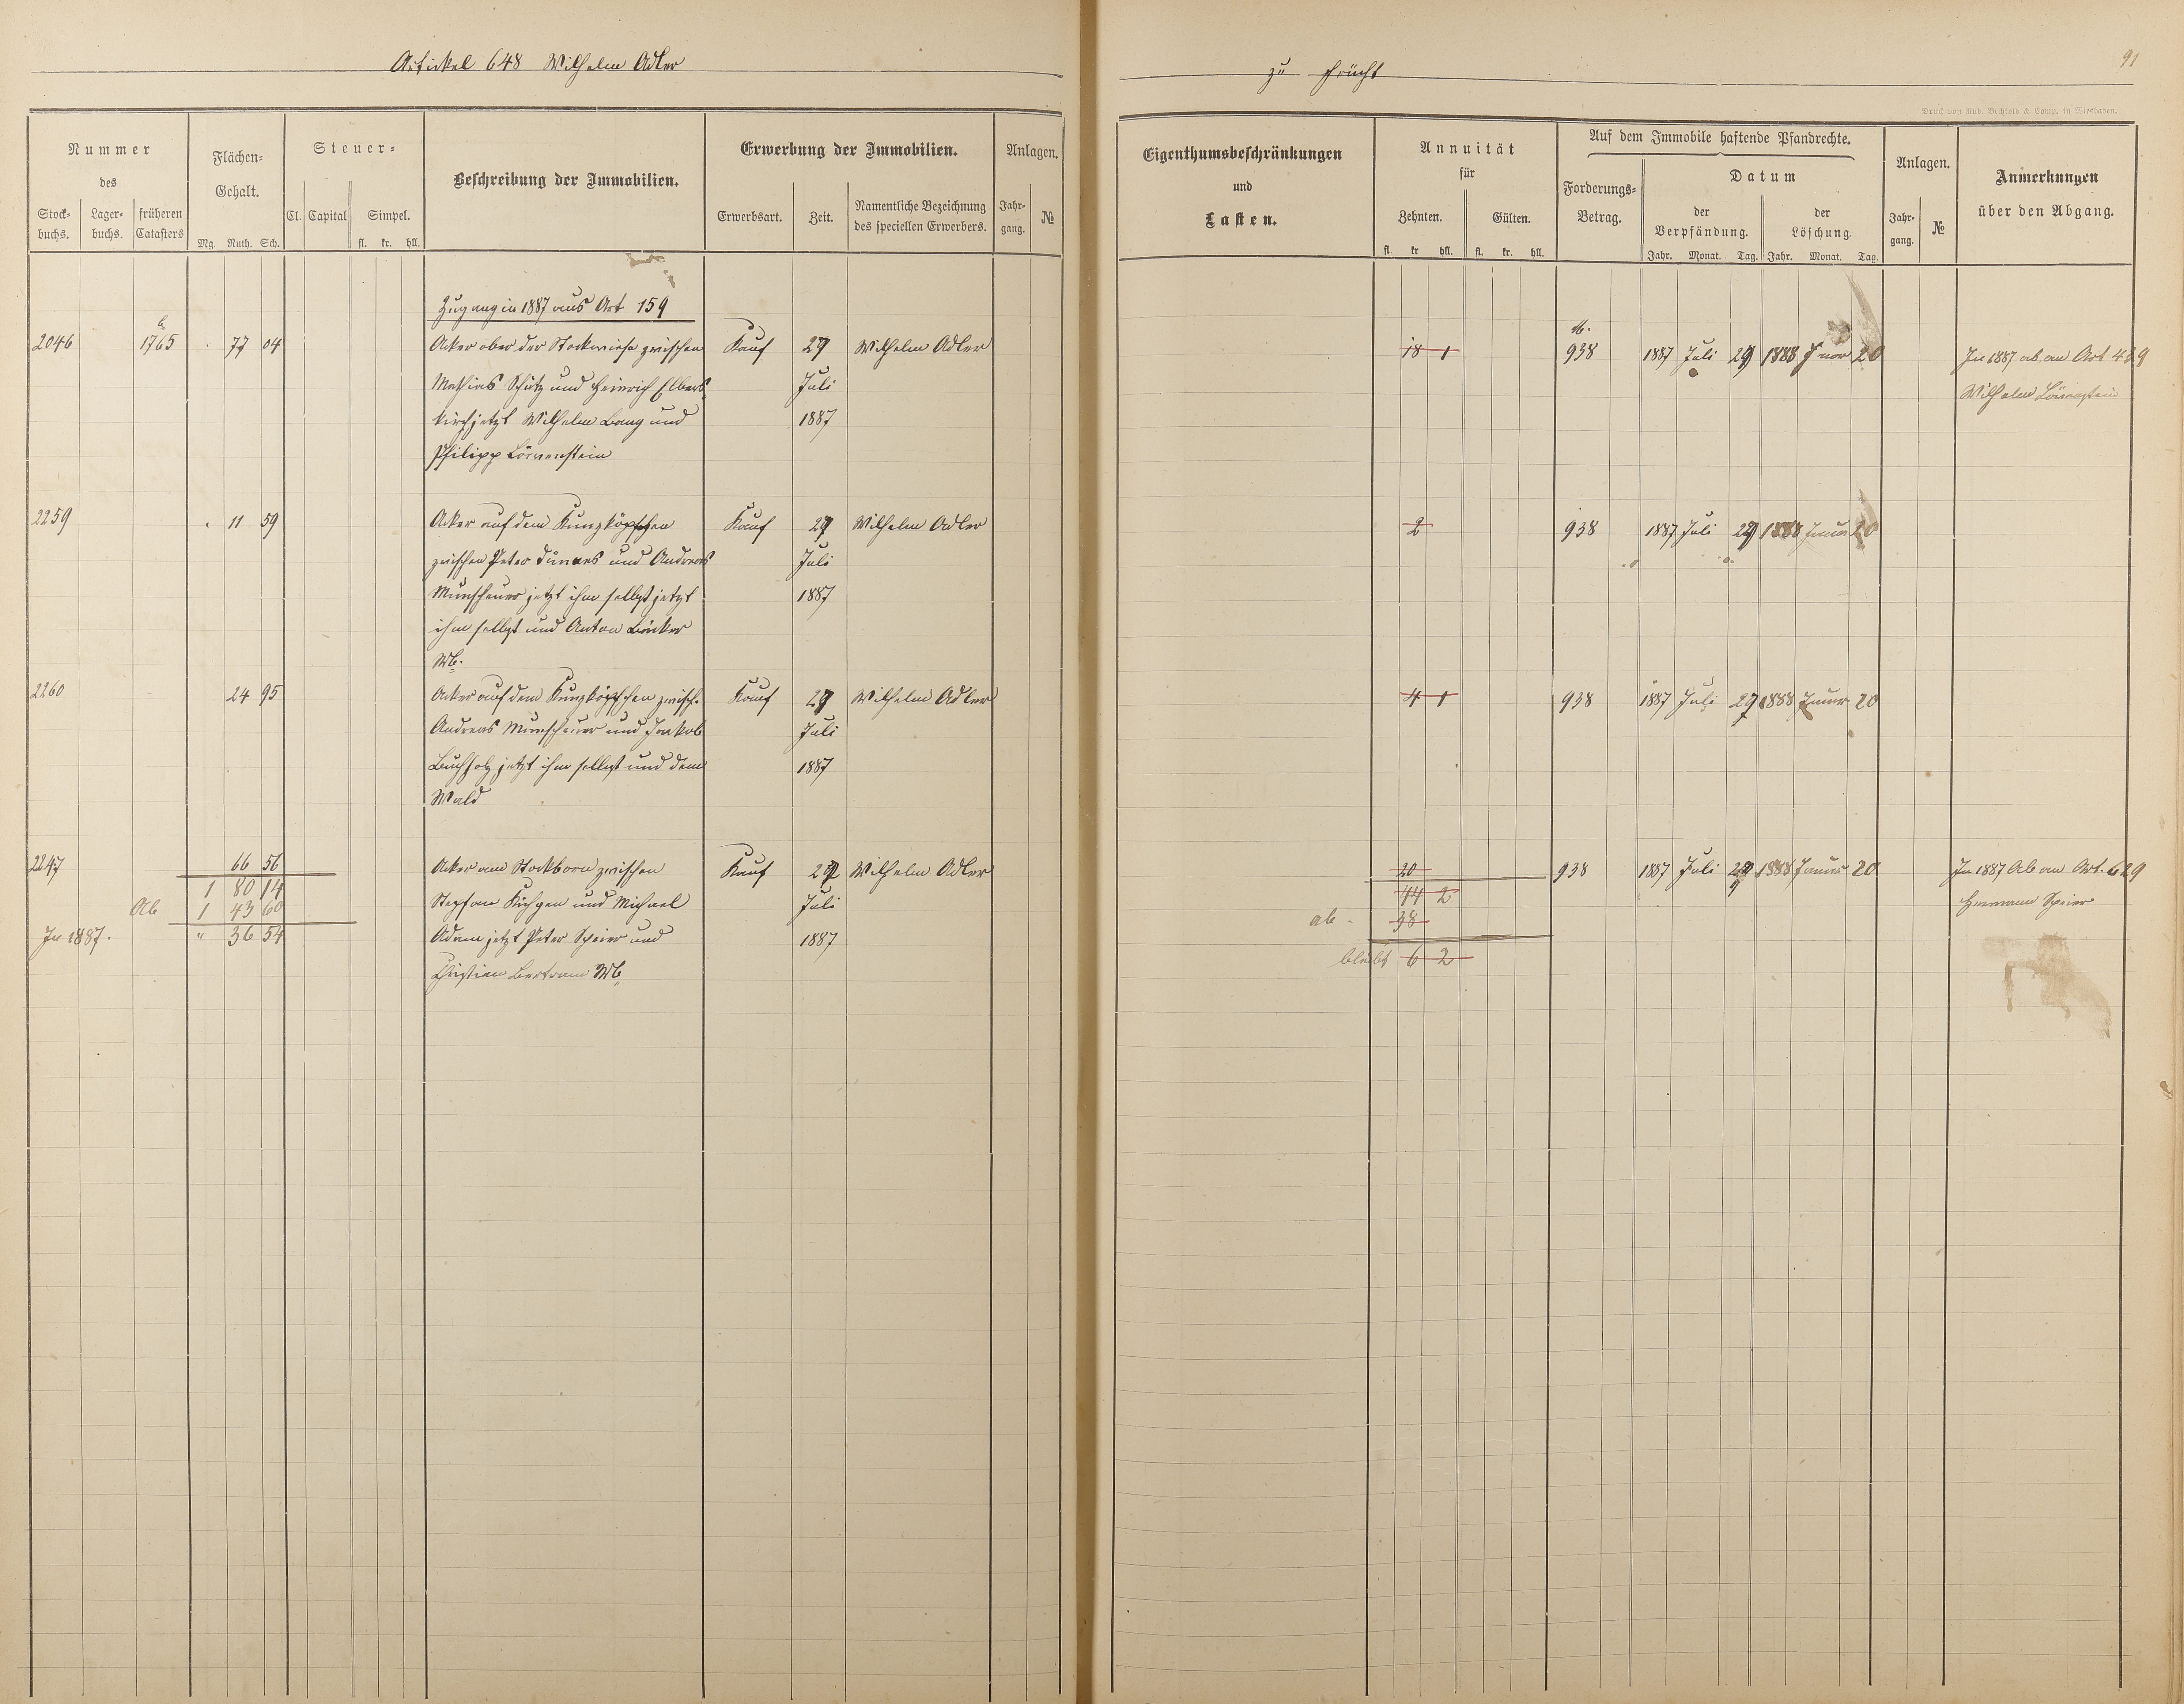 Artickel 648 Wilhelm Adler
zu Frücht
91
Druck von Rud. Bechtold & Comp. in Wiesbaden.
Nummer
des
Stock-
buchs.
Lager-
buchs.
früheren
Catasters
Flächen-
Gehalt.
Mg. Ruth. Sch.
Steuer-
Cl. Capital Simpel.
fl. kr. hll.
Beschreibung der Immobilien.
Erwerbung der Immobilien.
Erwerbsart. Zeit. Namentliche Bezeichnung
des speciellen Erwerbers.
Anlagen.
Jahr-
gang. №
Eigenthumsbeschränkungen
und
Lasten.
Annuität
für
Zehnten. Gülten.
fl. kr hll. fl. kr. hll.
Auf dem Immobile haftende Pfandrechte.
Forderungs-
Betrag.
Datum
der
Verpfändung.
der
Löschung.
Jahr. Monat. Tag. Jahr. Monat. Tag.
Anlagen.
Jahr-
gang. №
Anmerkungen
über den Abgang.
Zugang in 1887 aus Art 159
2046 1765 77 04 Acker ober der Stockwiese zwischen Kauf 29 Wilhelm Adler 18 1 M. 938 1887 Juli 29 1888 Januar 20 In 1887 ab an Art 439
Mathias Schütz und Heinrich Elberts Juli Wilhelm Löwenstein
kirch jetzt Wilhelm Bang und 1887
Philipp Löwenstein
2259 11 59 Acker auf dem Kunzköpfchen Kauf 29 Wilhelm Adler 2 938 1887 Juli 29 1888 Januar 20
zwischen Peter Dünnes und Andreas Juli
Munscheuer jetzt ihm selbst jetzt 1887
ihm selbst und Anton Bäcker
Mb.
2260 24 95 Acker auf dem Kunzköpfchen zwisch. Kauf 29 Wilhelm Adler 4 1 938 1887 Juli 29 1888 Januar 20
Andreas Munscheuer und Jakob Juli
Buchholz jetzt ihm selbst und dem 1887
Wald
2247 66 56 Acker am Stockborn zwischen Kauf 29 Wilhelm Adler 20 938 1887 Juli 29 1888 Januar 20 In 1887 Ab an Art. 629
1 80 14 Stephan Küchgen und Michael Juli 44 2 Hermann Speier
Ab 1 43 60 ab - 38
In 1887. " 36 54 Adam jetzt Peter Speier und 1887
bleibt 6 2
Christian Bertram Mb